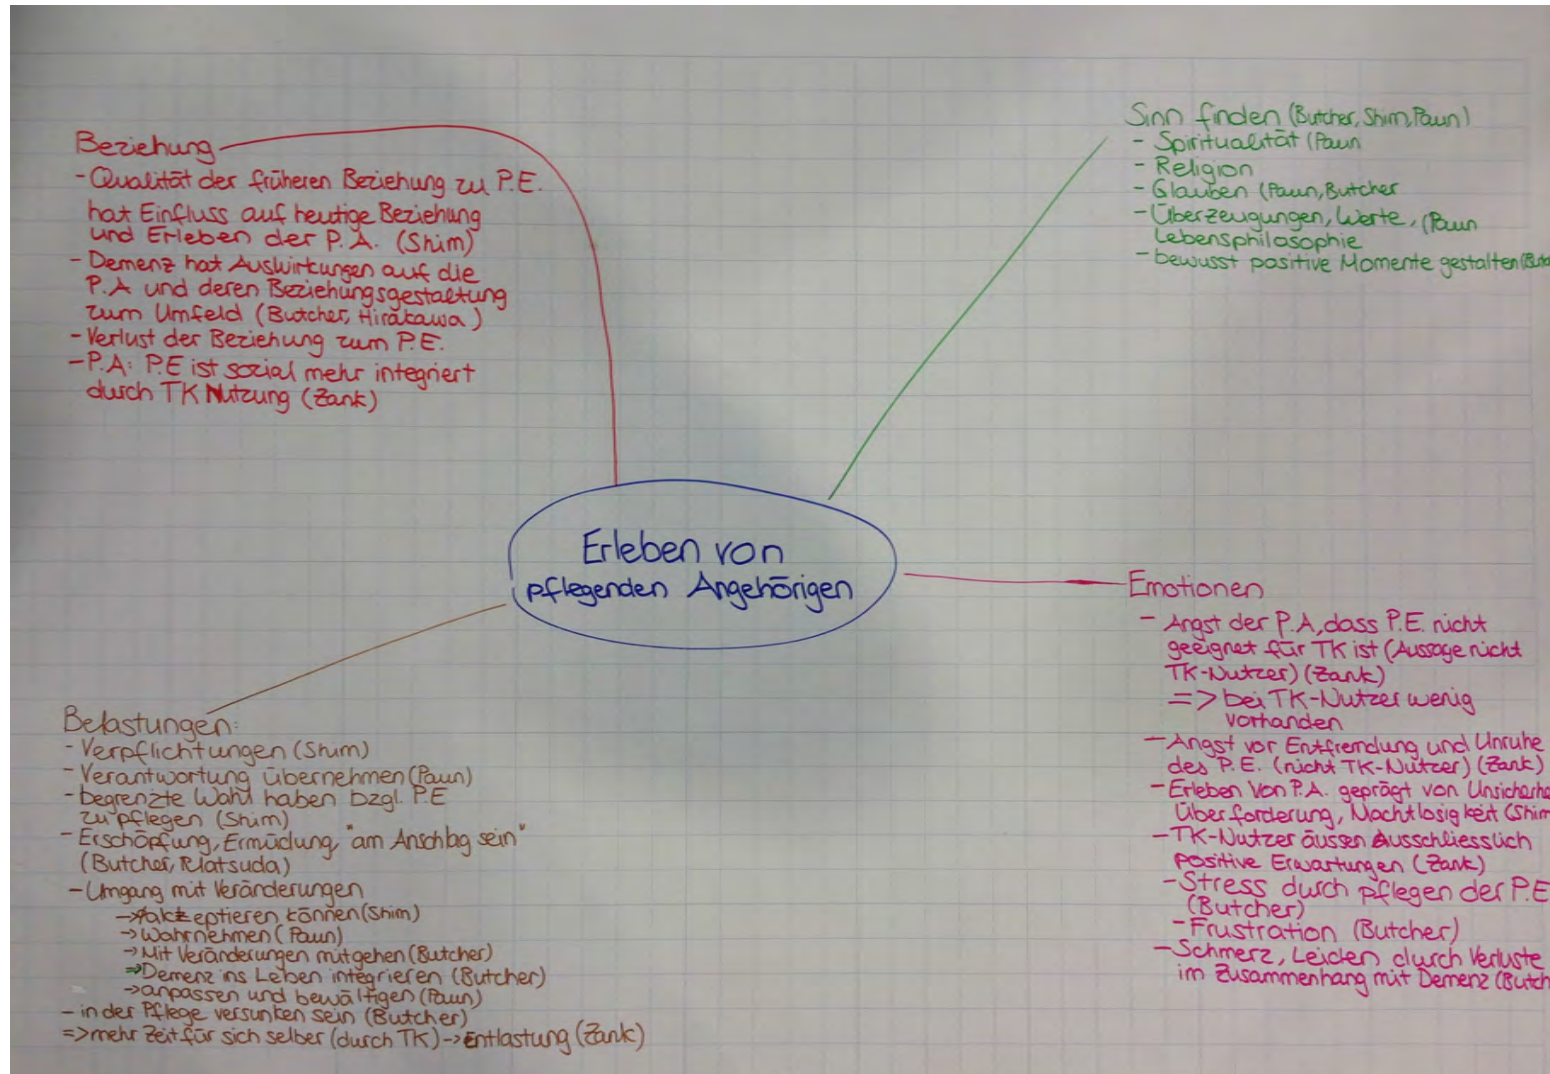 Beziehung
- Qualität der früheren Beziehung zu P.E.
hat Einfluss auf heutige Beziehung
und Erleben der P.A. (Shim)
- Demenz hat Auswirkungen auf die
P.A und deren Beziehungsgestaltung
zum Umfeld (Butcher, Hirakawa)
- Verlust der Beziehung zum P.E.
- P.A: P.E ist sozial mehr integriert
durch TK Nutzung (Zank)
Sinn finden (Butcher, Shim, Paun)
- Spiritualität (Paun
- Religion
- Glauben (Paun, Butcher
- Überzeugungen, Werte, (Paun
Lebensphilosophie
- bewusst positive Momente gestalten (Butc
Erleben von
pflegenden Angehörigen
Emotionen
- Angst der P.A, dass P.E. nicht
geeignet für TK ist (Aussage nicht
TK-Nutzer) (Zank)
=> bei TK-Nutzer wenig
vorhanden
- Angst vor Entfremdung und Unruhe
des P.E. (nicht TK-Nutzer) (Zank)
- Erleben von P.A. geprägt von Unsicherhe
Überforderung, Machtlosigkeit (Shim
- TK-Nutzer äussen Ausschliesslich
positive Erwartungen (Zank)
- Stress durch pflegen der P.E
(Butcher)
- Frustration (Butcher)
- Schmerz, Leiden durch Verluste
im Zusammenhang mit Demenz (Butch
Belastungen:
- Verpflichtungen (Shim)
- Verantwortung übernehmen (Paun)
- begrenzte Wahl haben bzgl. P.E
zu pflegen (Shim)
- Erschöpfung, Ermüdung, "am Anschlag sein"
(Butcher, Matsuda)
- Umgang mit Veränderungen
-> Akzeptieren können (Shim)
-> Wahrnehmen (Paun)
-> Mit Veränderungen mitgehen (Butcher)
=> Demenz ins Leben integrieren (Butcher)
-> anpassen und bewältigen (Paun)
- in der Pflege versunken sein (Butcher)
=> mehr Zeit für sich selber (durch TK) -> Entlastung (Zank)